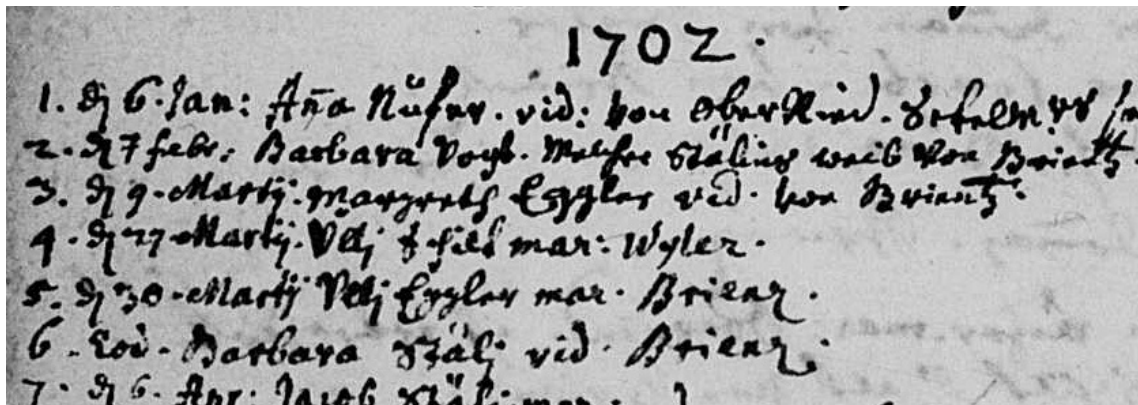 1702.
1. dj 6. Jan: Aña Nüfer. vid: von OberRied.
2. dj 7 febr: Barbara Vogt. Melcher Stälins weib von Brientz.
3. dj 9. Martij. Margreth Eggler vid. von Brientz.
4. dj 27 Martij. Ulj mar: Wyler.
5. dj 30. Martij Ulj Eggler mar. Brienz.
6. Eod. Barbara Stälj vid. Brienz.
7. dj 6. Apr: Jacob Stälj mar.